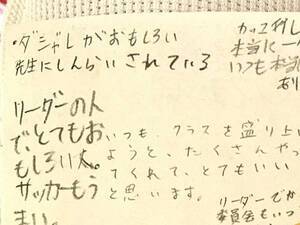 ・ダシャレがおもしろい
先生にしんらいされている
本当に一
いつも本当
あり
リーダーの人
で、とてもお
もしろい人。
サッカーもう
まい。
いつも、クラスを盛り上
ようと、たくさんやっ
てくれて、とてもいい
と思います。
リーダーでか
委員会もいつ